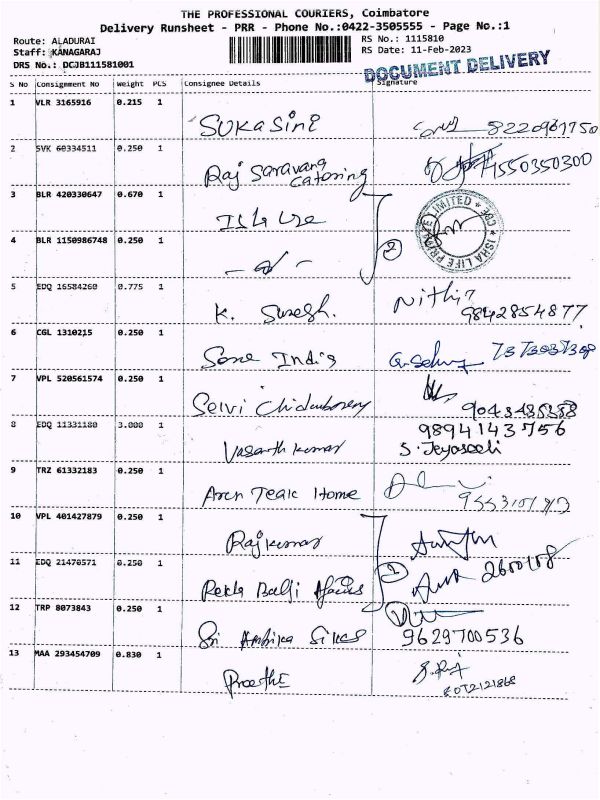 THE PROFESSIONAL COURIERS, Coimbatore
Delivery Runsheet - PRR - Phone No.:0422-3505555 - Page No.:1
Route: ALADURAI RS No.: 1115810
Staff: KANAGARAJ RS Date: 11-Feb-2023
DRS No.: DCJB111581001
DOCUMENT DELIVERY
S No Consignment No Weight PCS Consignee Details Signature
1 VLR 3165916 0.215 1
Sukasini
2 SVK 60334511 0.250 1
Raj Saravana Catering
3 BLR 420330647 0.670 1
Isha
ISHA LIFE PRIVATE LIMITED
4 BLR 1150986748 0.250 1
2
5 EDQ 16584260 0.775 1
K. Suresh. Nithin 9842854877
6 CGL 1310215 0.250 1
Sone India
7 VPL 520561574 0.250 1
Selvi
8 EDQ 11331180 3.000 1
9894143756
Vasanth Kumar S. Jeyaseeli
9 TRZ 61332183 0.250 1
Teak Home
10 VPL 401427879 0.250 1
Rajkumar
11 EDQ 21470571 0.250 1
12 TRP 8073843 0.250 1
Sri Ambika Silks 9629700536
13 MAA 293454709 0.830 1